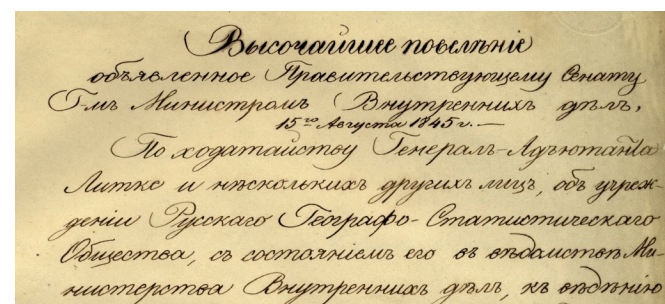 Высочайшее повелѣніе
объявленное Правительствующему Сенату
Г-мъ Министромъ Внутреннихъ дѣлъ,
15го Августа 1845 г. —
По ходатайству Генералъ-Адъютанта
Литке и нѣсколькихъ другихъ лицъ, объ учреж-
деніи Русскаго Географо-Статистическаго
Общества, съ состояніемъ его въ вѣдомствѣ Ми-
нистерства Внутреннихъ дѣлъ, къ вѣдѣнію